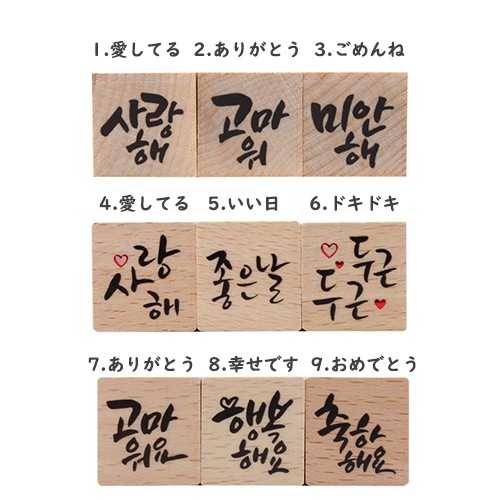 1.愛してる 2.ありがとう 3.ごめんね
사랑해 고마워 미안해
4.愛してる 5.いい日 6.ドキドキ
사랑해 좋은날 두근두근
7.ありがとう 8.幸せです 9.おめでとう
고마워요 행복해요 축하해요